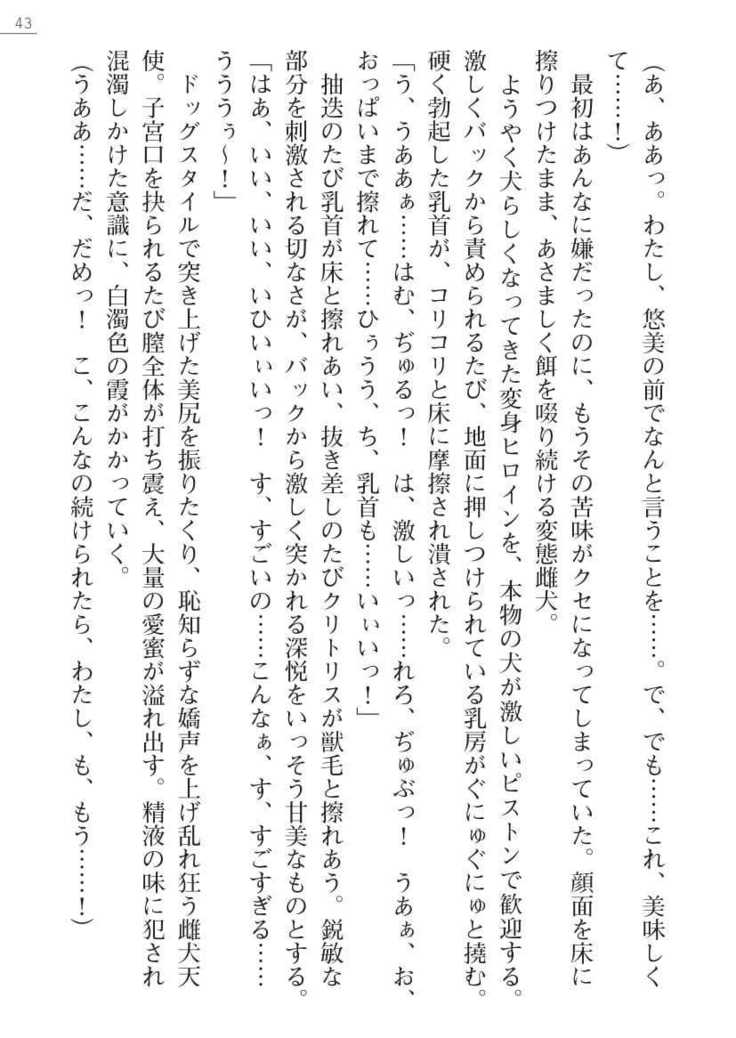 43
（あ、ああっ。わたし、悠美の前でなんと言うことを……。で、でも……これ、美味しく
て……！）
　最初はあんなに嫌だったのに、もうその苦味がクセになってしまっていた。顔面を床に
擦りつけたまま、あさましく餌を啜り続ける変態雌犬。
　ようやく犬らしくなってきた変身ヒロインを、本物の犬が激しいピストンで歓迎する。
激しくバックから責められるたび、地面に押しつけられている乳房がぐにゅぐにゅと撓む。
硬く勃起した乳首が、コリコリと床に摩擦され潰された。
「う、うああぁ……はむ、ぢゅるっ！　は、激しいっ……れろ、ぢゅぶっ！　うあぁ、お、
おっぱいまで擦れて……ひぅうう、ち、乳首も……いぃいっ！」
　抽迭のたび乳首が床と擦れあい、抜き差しのたびクリトリスが獣毛と擦れあう。鋭敏な
部分を刺激される切なさが、バックから激しく突かれる深悦をいっそう甘美なものとする。
「はあ、いい、いい、いひいぃいっ！　す、すごいの……こんなぁ、す、すごすぎる……
うううぅ～！」
　ドッグスタイルで突き上げた美尻を振りたくり、恥知らずな嬌声を上げ乱れ狂う雌犬天
使。子宮口を抉られるたび膣全体が打ち震え、大量の愛蜜が溢れ出す。精液の味に犯され
混濁しかけた意識に、白濁色の霞がかかっていく。
（うああ……だ、だめっ！　こ、こんなの続けられたら、わたし、も、もう……！）